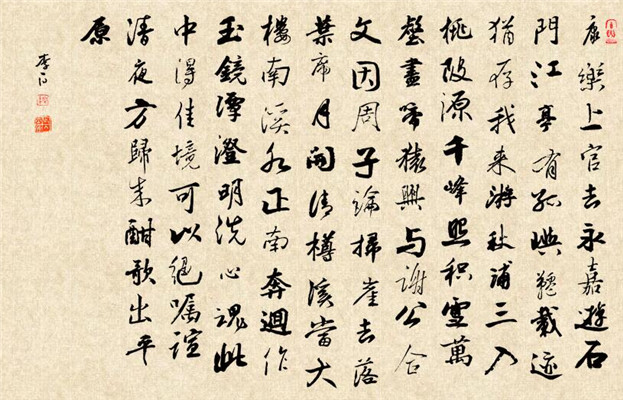 康樂上官去永嘉遊石
門江亭有孤嶼韆載迹
猶存我来游秋浦三入
桃陂源千峰照積雪萬
壑盡啼猿興与謝公合
文因周子論掃崖去落
葉席月開清樽溪當大
樓南溪水正南奔迴作
玉鏡潭澄明洗心魂此
中得佳境可以絕囑諠
清夜方歸来酣歌出平
原
李白